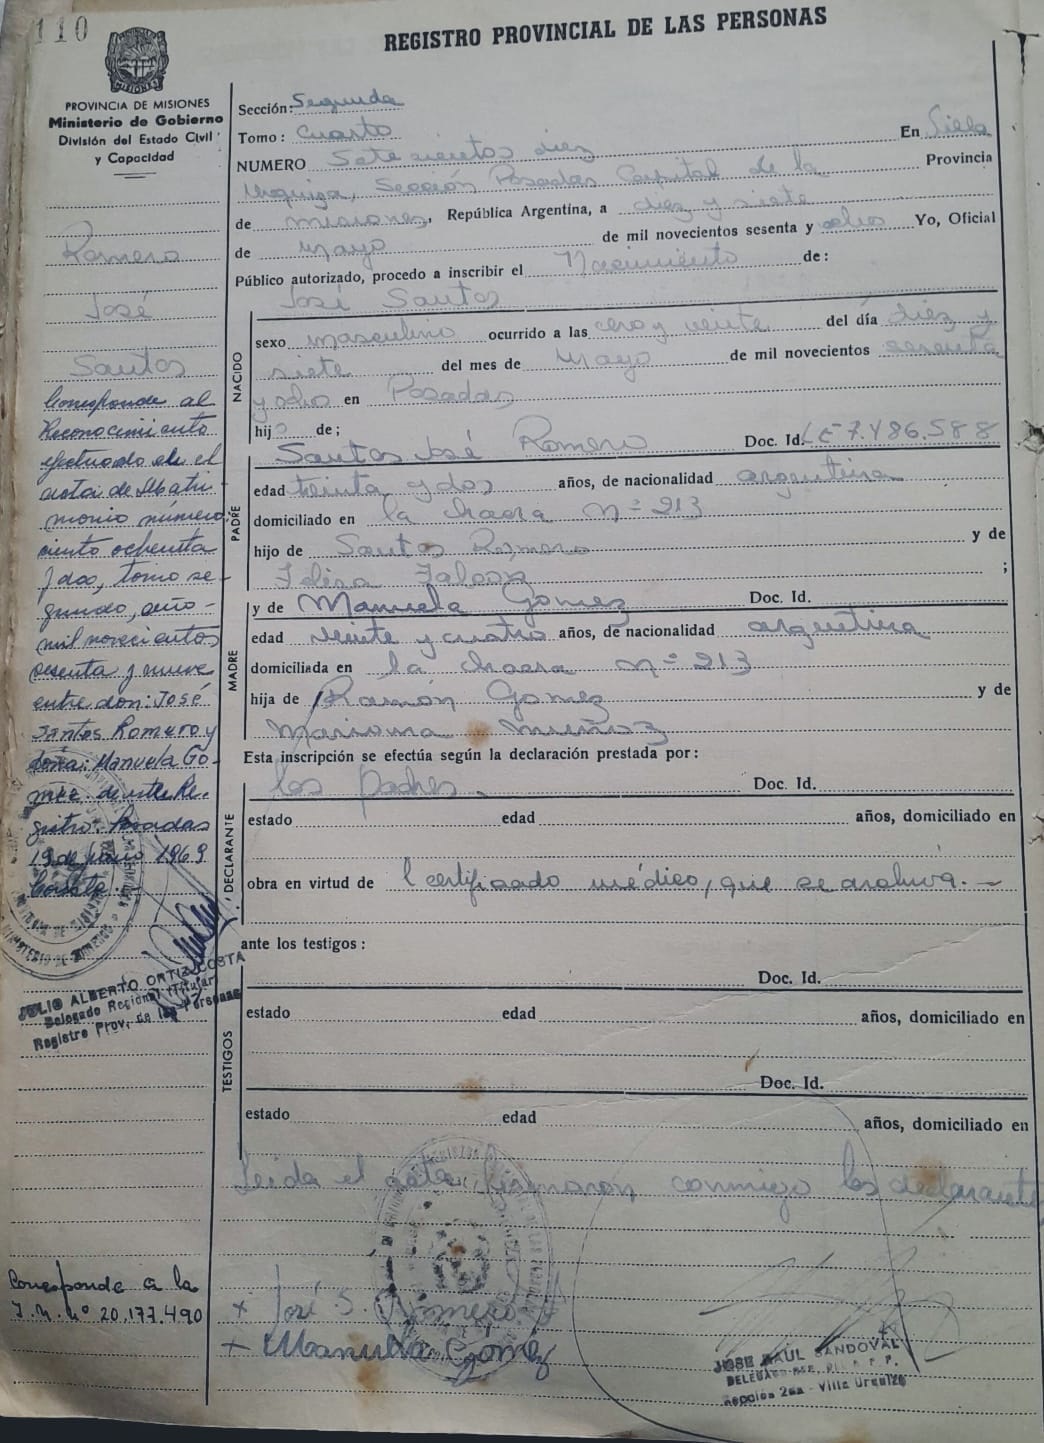 110
REGISTRO PROVINCIAL DE LAS PERSONAS
MISIONES
PROVINCIA DE MISIONES
Ministerio de Gobierno
División del Estado Civil
y Capacidad
Romero
José
Santos
Corresponde al
Reconocimiento
efectuado en el
acta de Matri-
monio número
ciento ochenta
y dos, tomo se-
gundo, año
mil novecientos
sesenta y nueve
entre don: José
Santos Romero y
doña: Manuela Gó-
mez de este Re-
gistro. Posadas
19 de 1969
JULIO ALBERTO ORTIZ COSTA
Delegado Regional (Titular)
Registro Prov. de las Personas
Corresponde a la
I.N. Nº 20.177.490
Sección: Segunda
Tomo: Cuarto
NUMERO Setecientos diez En Villa
Urquiza, Sección Posadas Capital de la Provincia
de misiones, República Argentina, a diez y siete
de Mayo de mil novecientos sesenta y ocho Yo, Oficial
Público autorizado, procedo a inscribir el Nacimiento de:
José Santos
NACIDO
sexo masculino ocurrido a las cero y veinte del día diez y
siete del mes de Mayo de mil novecientos sesenta
y ocho en Posadas
hijo de;
Santos José Romero Doc. Id. LE 7.486.588
PADRE
edad treinta y dos años, de nacionalidad argentina
domiciliado en la chacra nº 213
hijo de Santos Romero y de
;
y de Manuela Gomez Doc. Id.
MADRE
edad veinte y cuatro años, de nacionalidad argentina
domiciliada en la chacra nº 213
hija de Ramón Gomez y de
Mariana muñoz
Esta inscripción se efectúa según la declaración prestada por:
los padres. Doc. Id.
DECLARANTE
estado edad años, domiciliado en
obra en virtud de l certificado médico, que se archiva.-
ante los testigos:
Doc. Id.
TESTIGOS
estado edad años, domiciliado en
Doc. Id.
estado edad años, domiciliado en
Leida el acta firmaron conmigo los declarantes
+ José S. Romero
+ Manuela Gómez
JOSE RAUL SANDOVAL
Sección 2da - Villa Urquiza